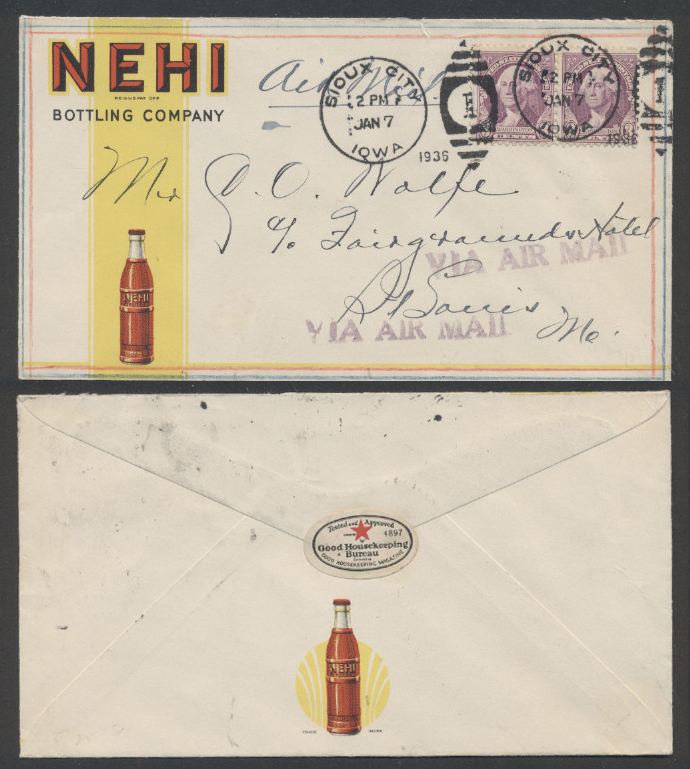 NEHI
REG.U.S.PAT. OFF.
BOTTLING COMPANY
Air Mail
SIOUX CITY
2 PM
JAN 7
IOWA
1936
SIOUX CITY
2 PM
JAN 7
IOWA
1936
Mr G. O. Wolfe
c/o Fairgrounds Hotel
VIA AIR MAIL
St Louis
VIA AIR MAIL
Mo.
NEHI
Tested and Approved
4897
Good Housekeeping
Bureau
GOOD HOUSEKEEPING MAGAZINE
NEHI
TRADE MARK